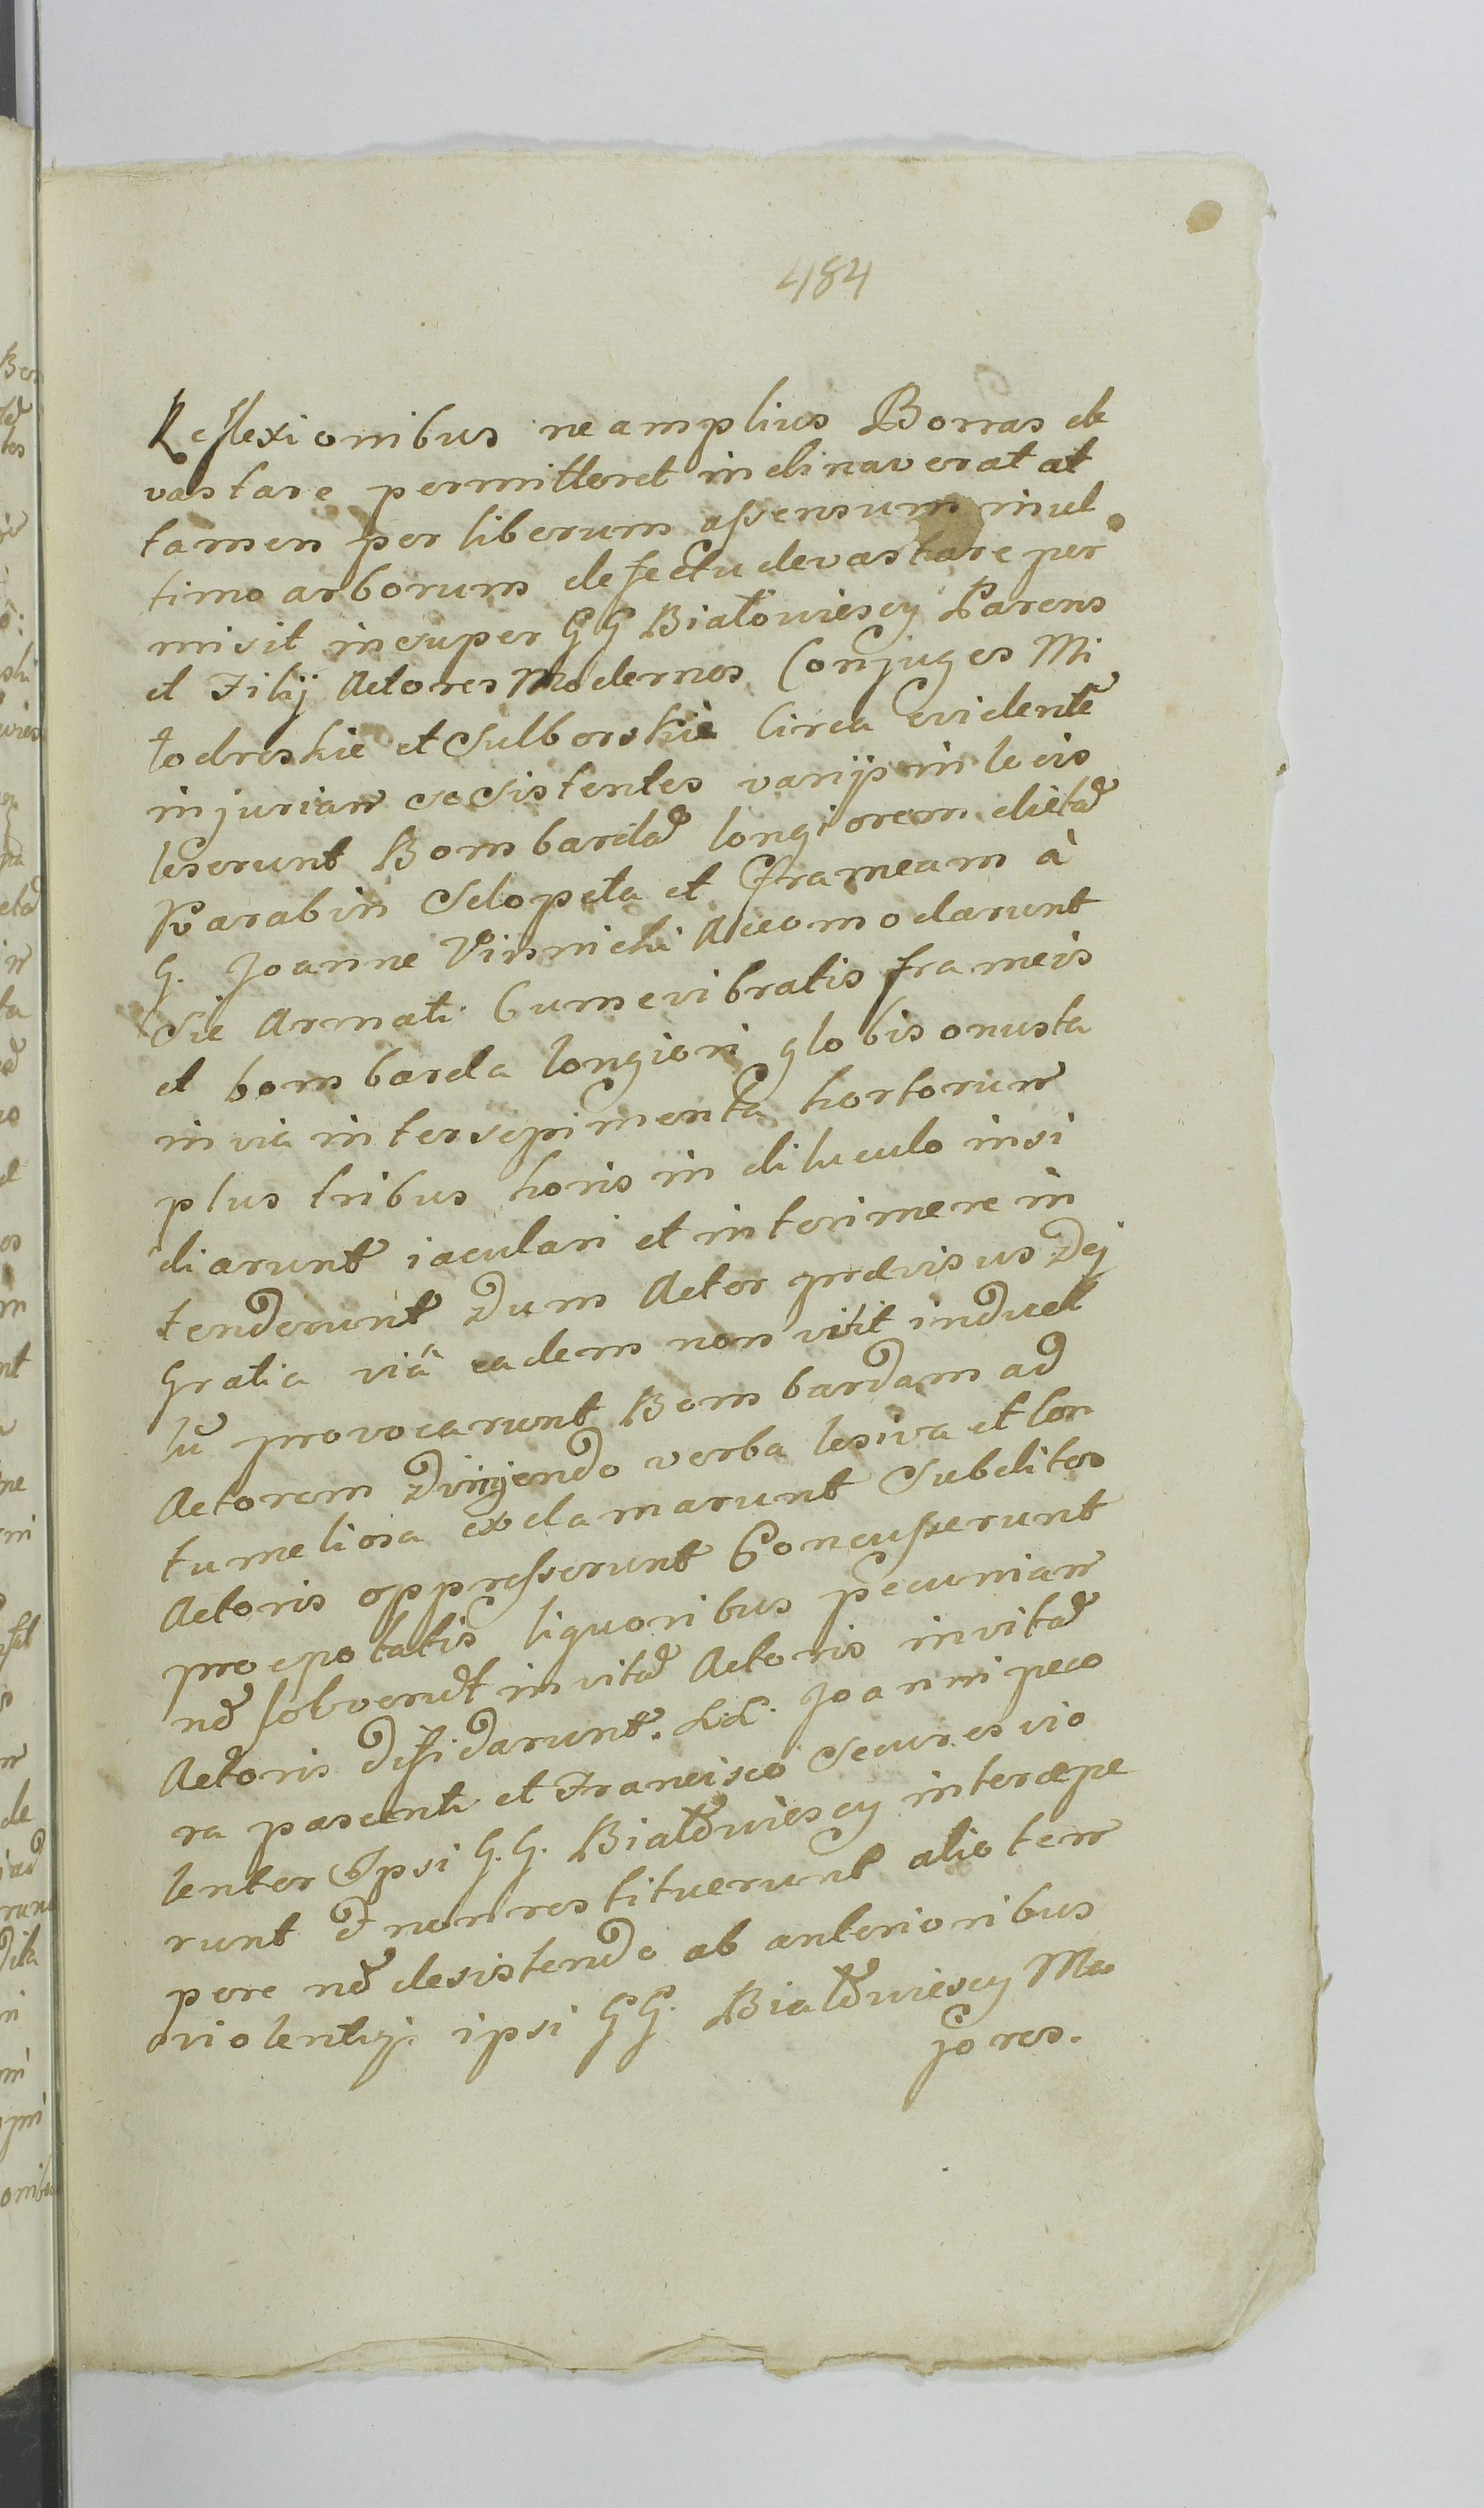 484
Reflexionibus ne amplius Borras de
vastare permitteret inclinaverat at
tamen per liberum assensum in ul
timo arborum defectu devastare per
misit insuper GG Białowiescy Parens
et Filij Actores Modernos Conjuges Mi
łodroskie et Sulborskie Circa evidentē
injuriam consistentes varijs in locis
leserunt Bombardā longiorem dictā
Karabin Sclopeta et frameam à
G. Joanne Vinnicki Accomodarunt
Sic Armati Cum evibratis frameis
et bombarda longiori globis onusta
in via inter sepimenta hortorum
plus tribus horis in diluculo insi
diarunt iaculari et interimere in
tenderunt Dum Actor prævisus Dej
Gratia viâ eadem non vitit in duel
lū provocarunt Bombardam ad
Actorem Dirigendo verba lesiva et Con
tumeliosa exclamarunt Subditos
Actoris oppresserunt Concusserunt
pro epotatis liquoribus pecuniam
nō solverūt in vitā Actoris in vitā
Actoris Diffidarunt. LL. Joanni peco
ra pascenti et Francisco Secures vio
lenter Ipsi G.G. Białowiescy intercepe
runt & non restituerunt alio tem
pore nō desistendo ab anterioribus
violentijs ipsi GG. Białowiescy Ma
jores.